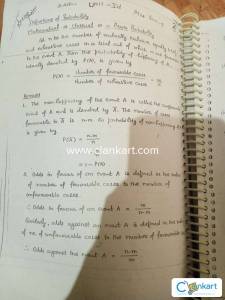 Unit - III
Definition of Probability
Mathematical or Classical or Priori Probability
If n be the number of mutually exclusive, equally likely
and exhaustive cases in a trial out of which m are favourable
to the event A. Then the probability of happening of A,
usually denoted by P(A), is given by
P(A) = Number of favourable cases / Number of exhaustive cases = m/n
Remarks
1. The non-happening of the event A is called the complementary
event of A and is denoted by Ā. The number of cases
favourable to Ā is n-m. So probability of non-happening of A
is given by
P(Ā) = n-m / n
= 1 - P(A)
2. Odds in favour of an event A is defined as the ratio
of number of favourable cases to the number of
unfavourable cases.
∴ Odds in favour of an event A = m / n-m
Similarly, odds against an event A is defined as the ratio
of no. of unfavourable cases to the number of favourable cases
∴ Odds against the event A = n-m / m
www.clankart.com
Clankart